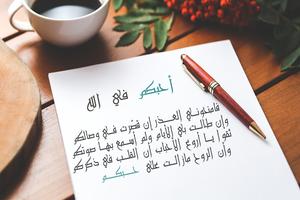 أحبكم في الله
فامنحوني العذر إن قصرت في وصالكم
وإن طالت بي الأيام ولم أسمع بها صوتكم
ثقوا يا أروع الأحباب أن القلب في ذكركم
وإن الروح مازالت على حبكم